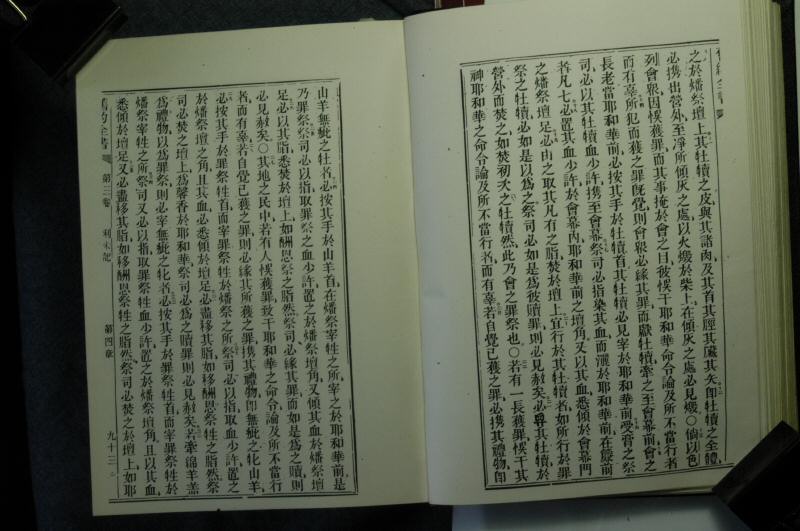 舊約全書
之於燔祭壇上其牡犢之皮與其諸肉及其首其脛其臟其矢卽牡犢之全體
必携出營外至淨所傾灰之處以火燬於柴上在傾灰之處必見燬○倘以色
列會眾因悞獲罪而其事掩於會之目彼悞干耶和華命令論及所不當行者
而有辜所犯而獲之罪旣覺則會眾必緣其罪而獻牡犢牽之至會幕前會之
長老當耶和華前必按其手於牡犢首其牡犢必見宰於耶和華前受膏之祭
司必以其牡犢血少許携至會幕祭司必指染其血而灑於耶和華前在蔽前
者凡七必置其血少許於會幕內耶和華前之壇角又以其血悉傾於會幕門
之燔祭壇足必由之取其凡有之脂焚於壇上宜行於其牡犢者如所行於罪
祭之牡犢必如是以爲之祭司必如是爲彼贖罪則必見赦矣必舁其牡犢於
營外而焚之如焚初次之牡犢然此乃會之罪祭也○若有一長獲罪悞干其
神耶和華之命令論及所不當行者而有辜若自覺已獲之罪必携其禮物卽
山羊無疵之牡者必按其手於山羊首在燔祭宰牲之所宰之於耶和華前是
乃罪祭祭司必以指取罪祭之血少許置之於燔祭壇角又傾其血於燔祭壇
足必以其脂悉焚於壇上如酬恩祭之脂然祭司必緣其罪而如是爲之贖則
必見赦矣○其地之民中若有人悞獲罪致干耶和華之命令論及所不當行
者而有辜若自覺已獲之罪則必緣其所獲之罪携其禮物卽無疵之牝山羊
必按其手於罪祭牲首而宰罪祭牲於燔祭之所祭司必以指取血少許置之
於燔祭壇之角且其血必悉傾於壇足必盡移其脂如移酬恩祭牲之脂然祭
司必焚之壇上爲馨香於耶和華祭司必爲之贖罪則必見赦矣若牽綿羊羔
爲禮物以爲罪祭則必牽無疵之牝者必按其手於罪祭牲首而宰罪祭牲於
燔祭宰牲之所祭司又必以指取罪祭牲血少許置之於燔祭壇角且以其血
悉傾於壇足又必盡移其脂如移酬恩祭牲之脂然祭司必焚之於壇上如耶
舊約全書 第三卷 利未記 第四章 九十三